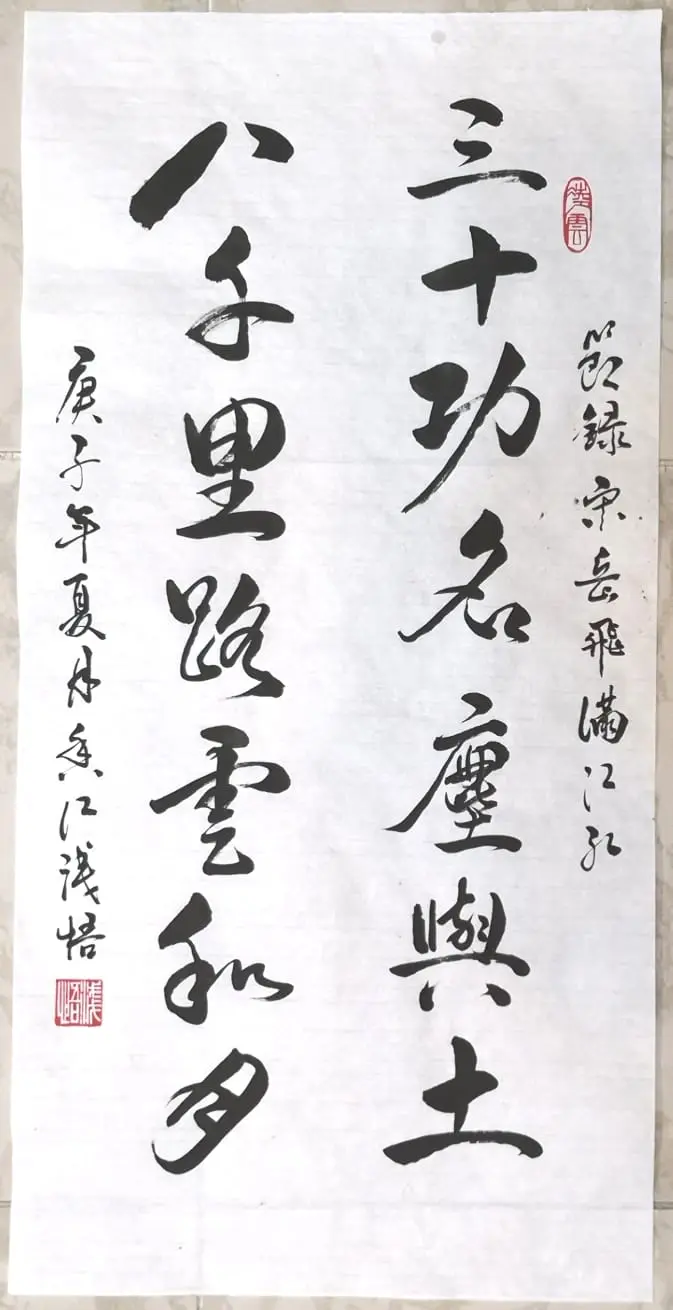 凌雲
節錄宋岳飛滿江紅
三十功名塵與土
八千里路雲和月
庚子年夏月香江淺悟